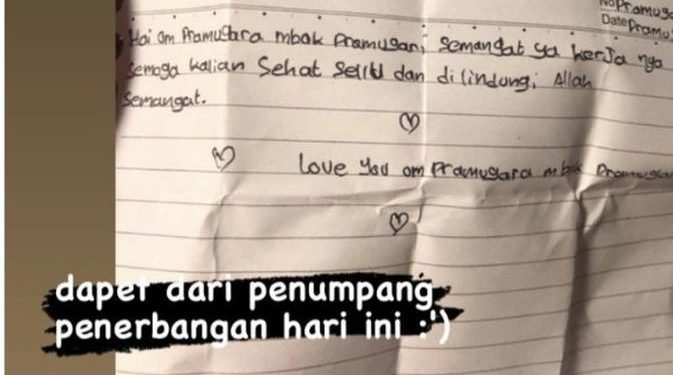 No Pramuga
Date Pramu
Hai om Pramugara mbak Pramugari semangat ya kerJa nya
semoga kalian Sehat Sellu dan di lindungi Allah
Semangat.
Love you om Pramugara mbak Pramugar
dapet dari penumpang
penerbangan hari ini :')